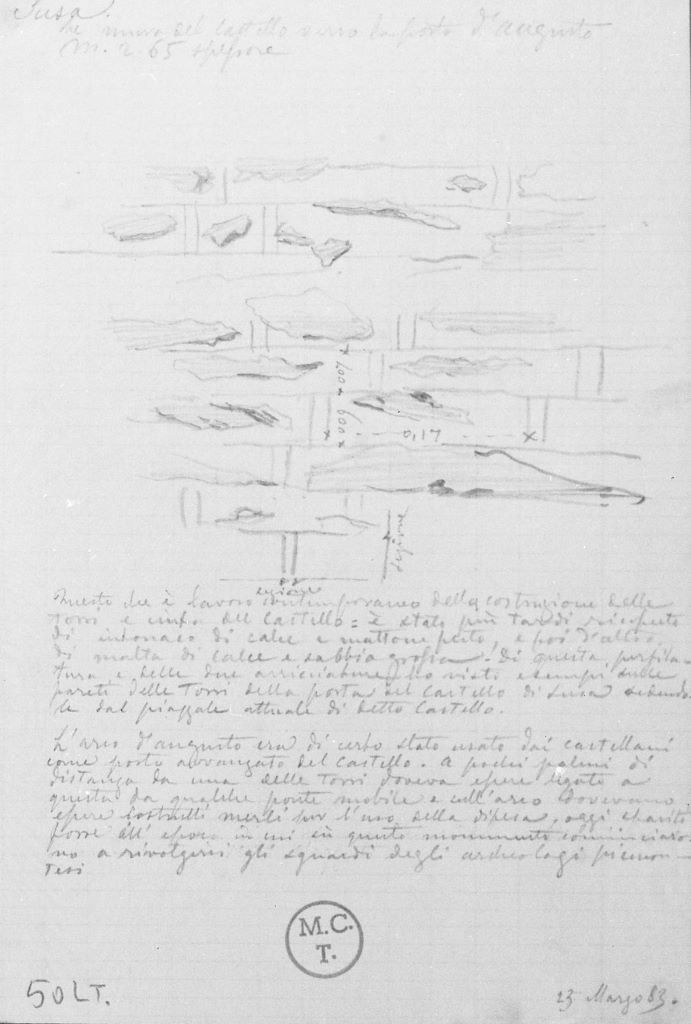 Susa.
Le mura del Castello verso la porta d'augusto
m. 2.65 spessore
007
009
0,17
Questo che è lavoro contemporaneo della costruzione delle
torri e cinta del Castello = è stato più tardi ricoperto
di intonaco di calce e mattone pesto, e poi d'altro
di malta di calce e sabbia grossa. Di questa profila-
tura e delle due arricciature ho visto esempi sulle
pareti delle Torri della porta del Castello di Susa
le dal piazzale attuale di detto Castello.
L'arco d'augusto era di certo stato usato dai castellani
come porta avanzata del Castello. A pochi palmi di
distanza da una delle torri doveva essere legato a
questa da qualche ponte mobile e sull'arco dovevano
essere costrutti merli per l'uso della difesa, oggi spariti
forse all'epoca in cui su questo monumento cominciaro-
no a rivolgersi gli sguardi degli archeologi piemon-
tesi
M.C.
T.
50 LT.
23 Marzo 83.